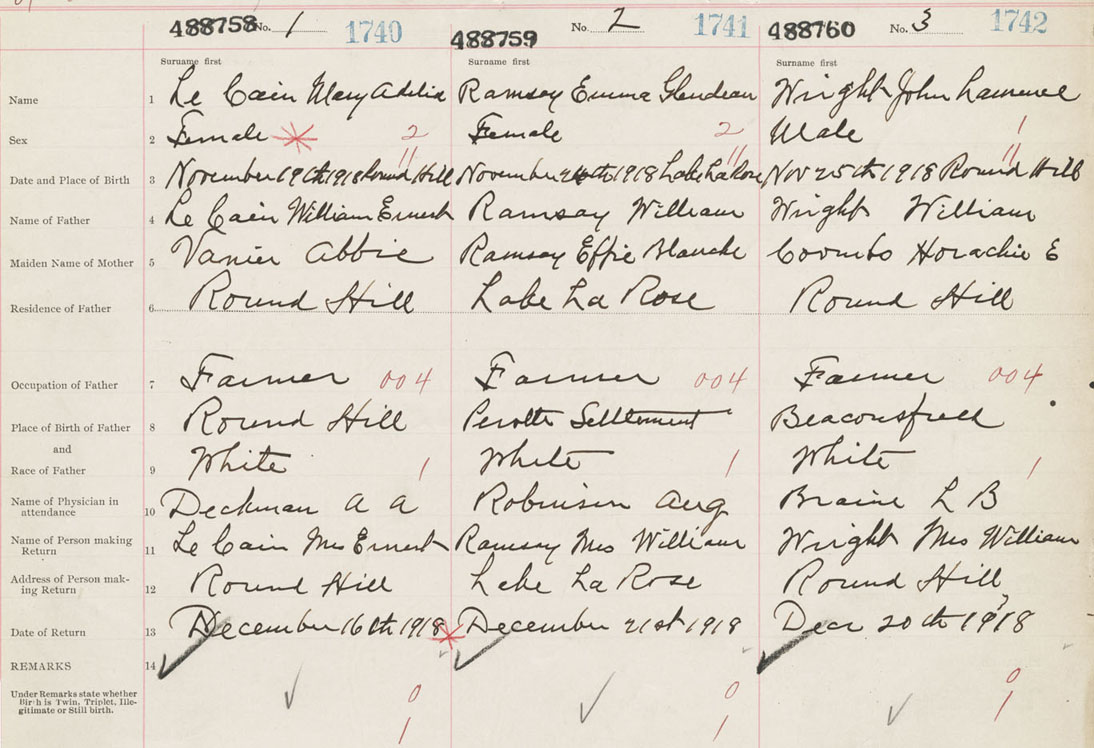 488758 No. 1 1740 488759 No. 2 1741 488760 No. 3 1742
Surname first Surname first Surname first
Name 1 Le Cain Mary Adelia Ramsey Emma Glendean Wright John Lawrence
Sex 2 Female 2 Female 2 Male 1
Date and Place of Birth 3 November 19th 1918 Round Hill 11 November 24th 1918 Lake La Rose 11 Nov 25th 1918 Round Hill 11
Name of Father 4 Le Cain William Ernest Ramsay William Wright William
Maiden Name of Mother 5 Vanier Abbie Ramsey Effie Blanche Coombs Horachie E
Residence of Father 6 Round Hill Lake La Rose Round Hill
Occupation of Father 7 Farmer 004 Farmer 004 Farmer 004
Place of Birth of Father 8 Round Hill Perotte Settlement Beaconsfield
and
Race of Father 9 White 1 White 1 White 1
Name of Physician in
attendance 10 Deckman A A Robinson Aug Braine L B
Name of Person making
Return 11 Le Cain Mrs Ernest Ramsay Mrs William Wright Mrs William
Address of Person mak-
ing Return 12 Round Hill Lake La Rose Round Hill
Date of Return 13 December 16th 1918 December 21st 1918 Dec 20th 1918
REMARKS 14
Under Remarks state whether
Birth is Twin, Triplet, Ille-
gitimate or Still birth.
0 0 0
1 1 1